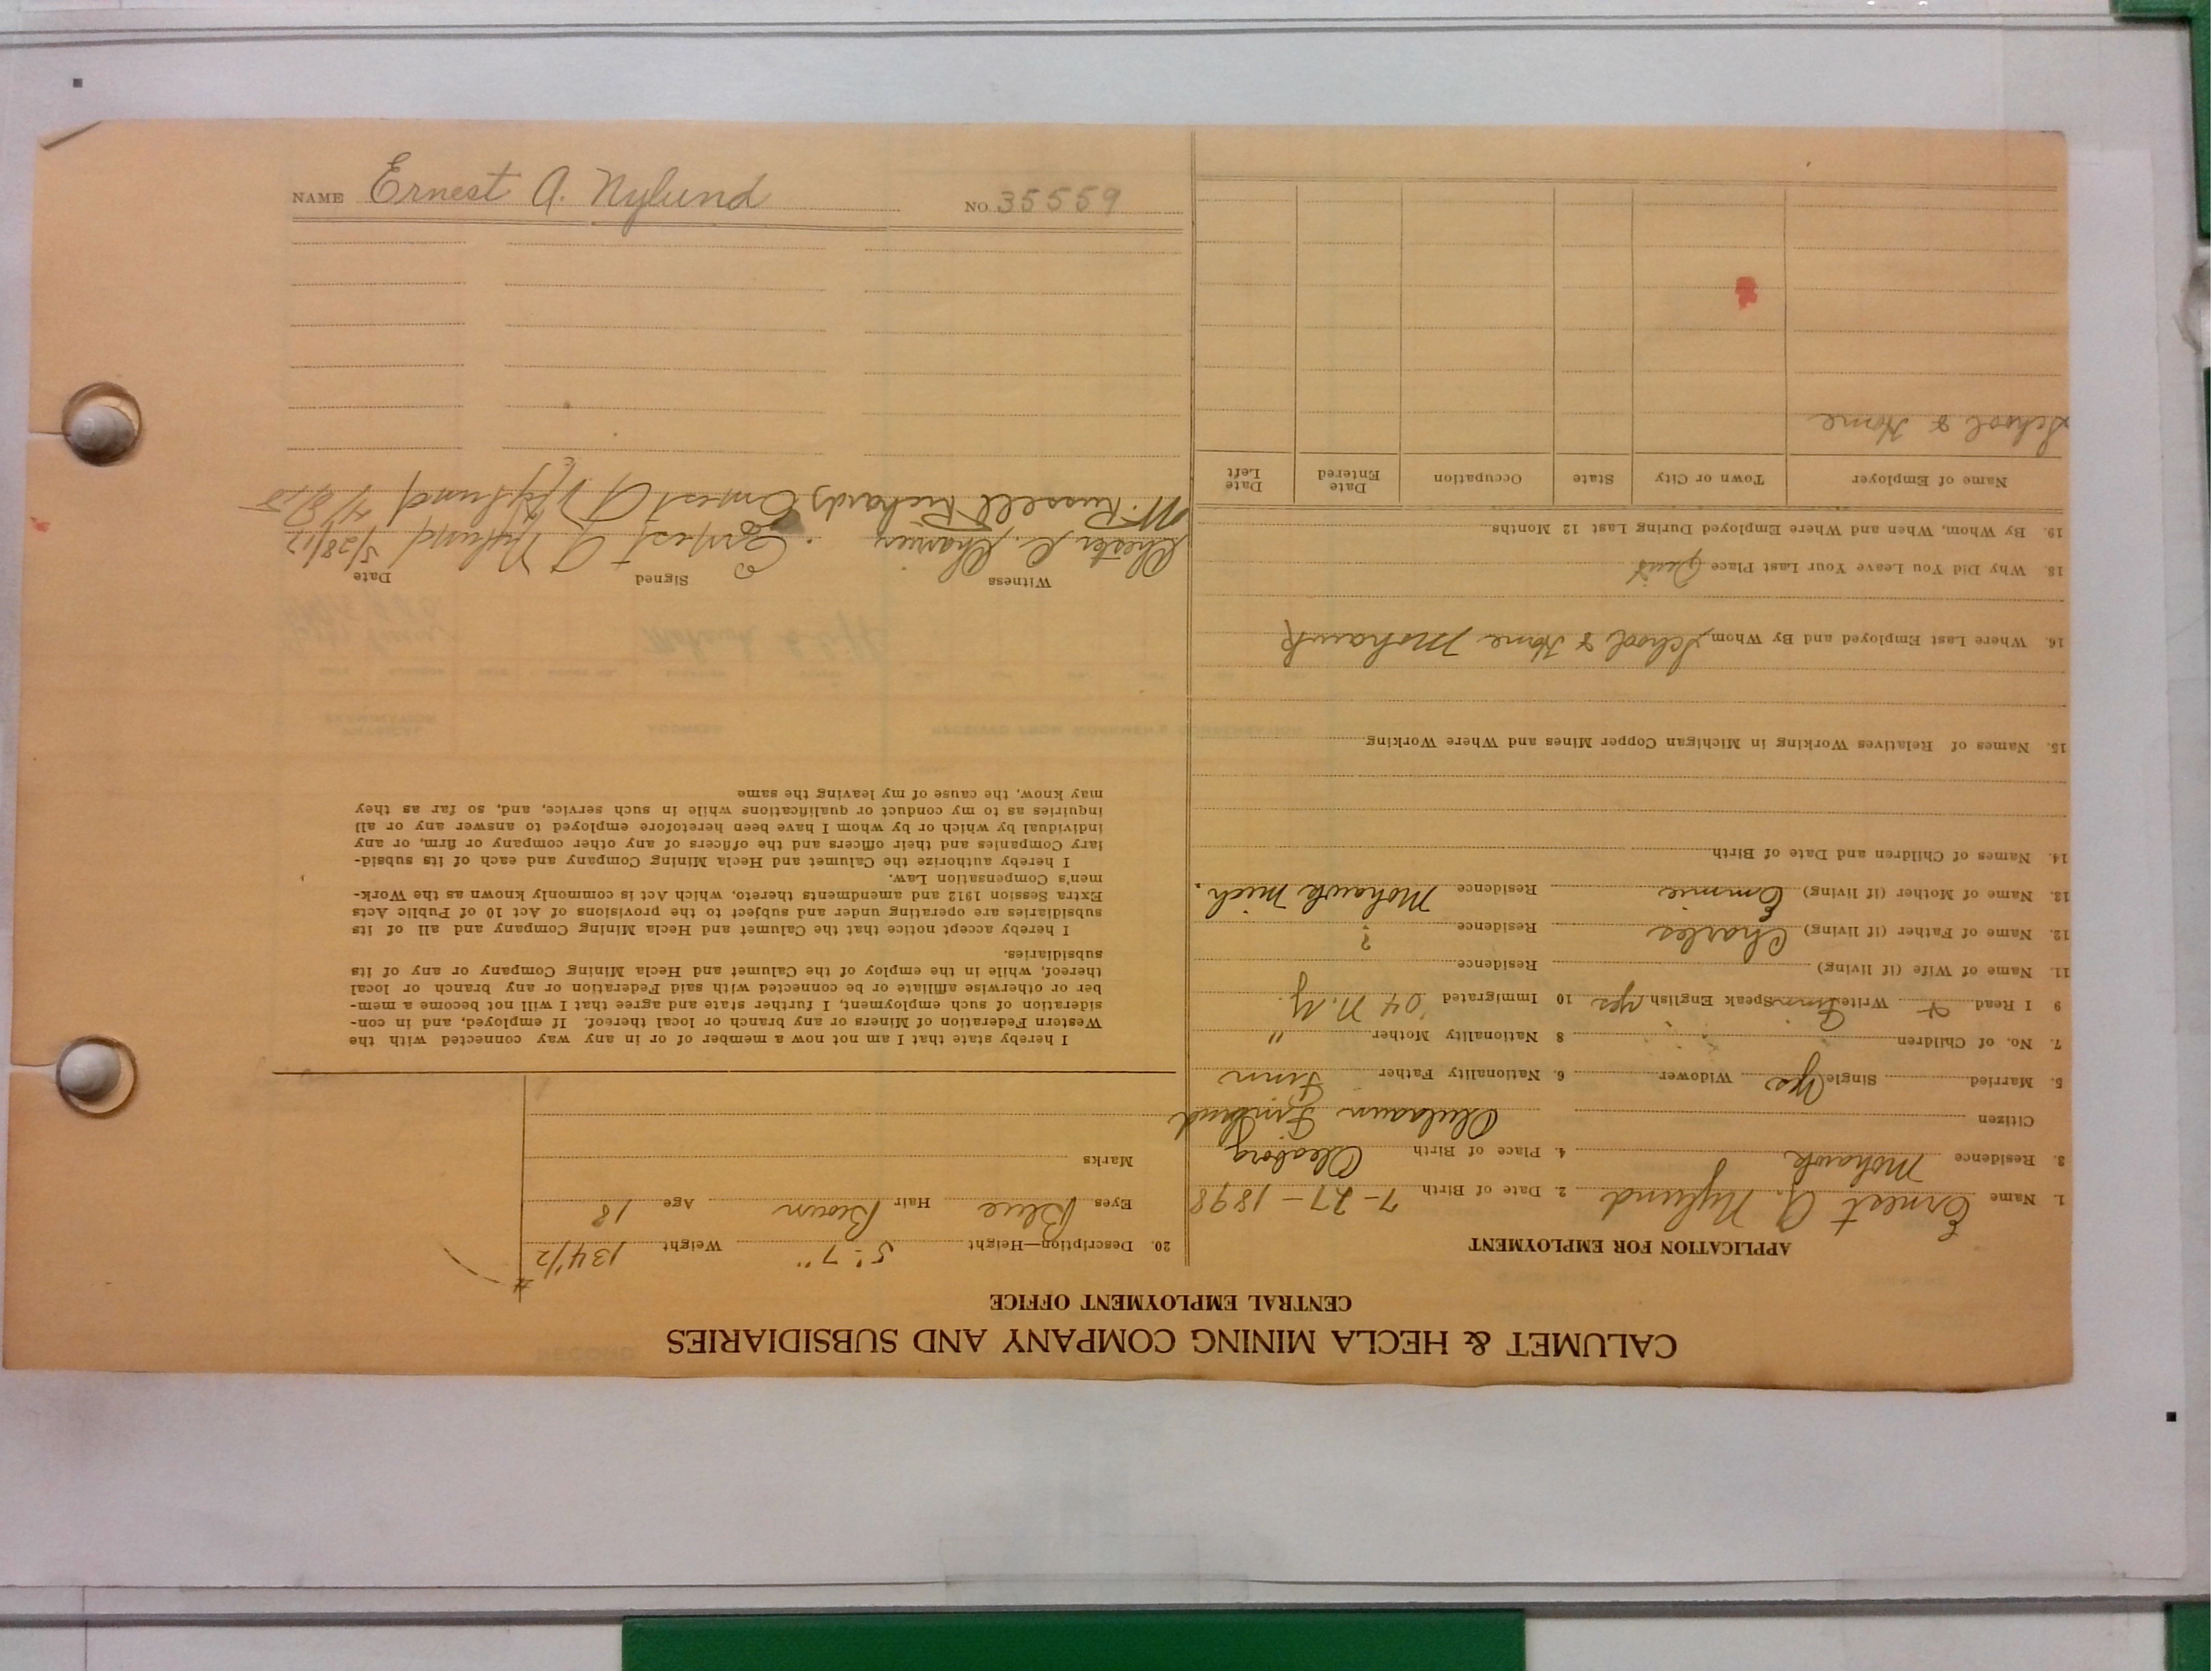 CALUMET & HECLA MINING COMPANY AND SUBSIDIARIES
CENTRAL EMPLOYMENT OFFICE
APPLICATION FOR EMPLOYMENT
1. Name Ernest A. Nylund 2. Date of Birth 7-27-1898
3. Residence Mohawk 4. Place of Birth
Citizen Finland
5. Married Single yes Widower 6. Nationality Father Finn
7. No. of Children 8 Nationality Mother "
9 I Read & Write Finn Speak English yes 10 Immigrated '04 N.Y.
11. Name of Wife (if living) Residence
12. Name of Father (if living) Charles Residence ?
13. Name of Mother (if living) Emmie Residence Mohawk Mich.
14. Names of Children and Date of Birth
15. Names of Relatives Working in Michigan Copper Mines and Where Working
16. Where Last Employed and By Whom School & Home Mohawk
18. Why Did You Leave Your Last Place Quit
19. By Whom, When and Where Employed During Last 12 Months
Name of Employer Town or City State Occupation Date Entered Date Left
School & Home
20. Description—Height 5'-7" Weight 134 1/2
Eyes Blue Hair Brown Age 18
Marks
I hereby state that I am not now a member of or in any way connected with the
Western Federation of Miners or any branch or local thereof. If employed, and in con-
sideration of such employment, I further state and agree that I will not become a mem-
ber or otherwise affiliate or be connected with said Federation or any branch or local
thereof, while in the employ of the Calumet and Hecla Mining Company or any of its
subsidiaries.
I hereby accept notice that the Calumet and Hecla Mining Company and all of its
subsidiaries are operating under and subject to the provisions of Act 10 of Public Acts
Extra Session 1912 and amendments thereto, which Act is commonly known as the Work-
men's Compensation Law.
I hereby authorize the Calumet and Hecla Mining Company and each of its subsid-
iary Companies and their officers and the officers of any other company or firm, or any
individual by which or by whom I have been heretofore employed to answer any or all
inquiries as to my conduct or qualifications while in such service, and, so far as they
may know, the cause of my leaving the same
Witness Signed Date
Chester C. Ernest A Nylund 5/28/17
W. Russell Richards Ernest A Nylund
NAME Ernest A. Nylund NO. 35559